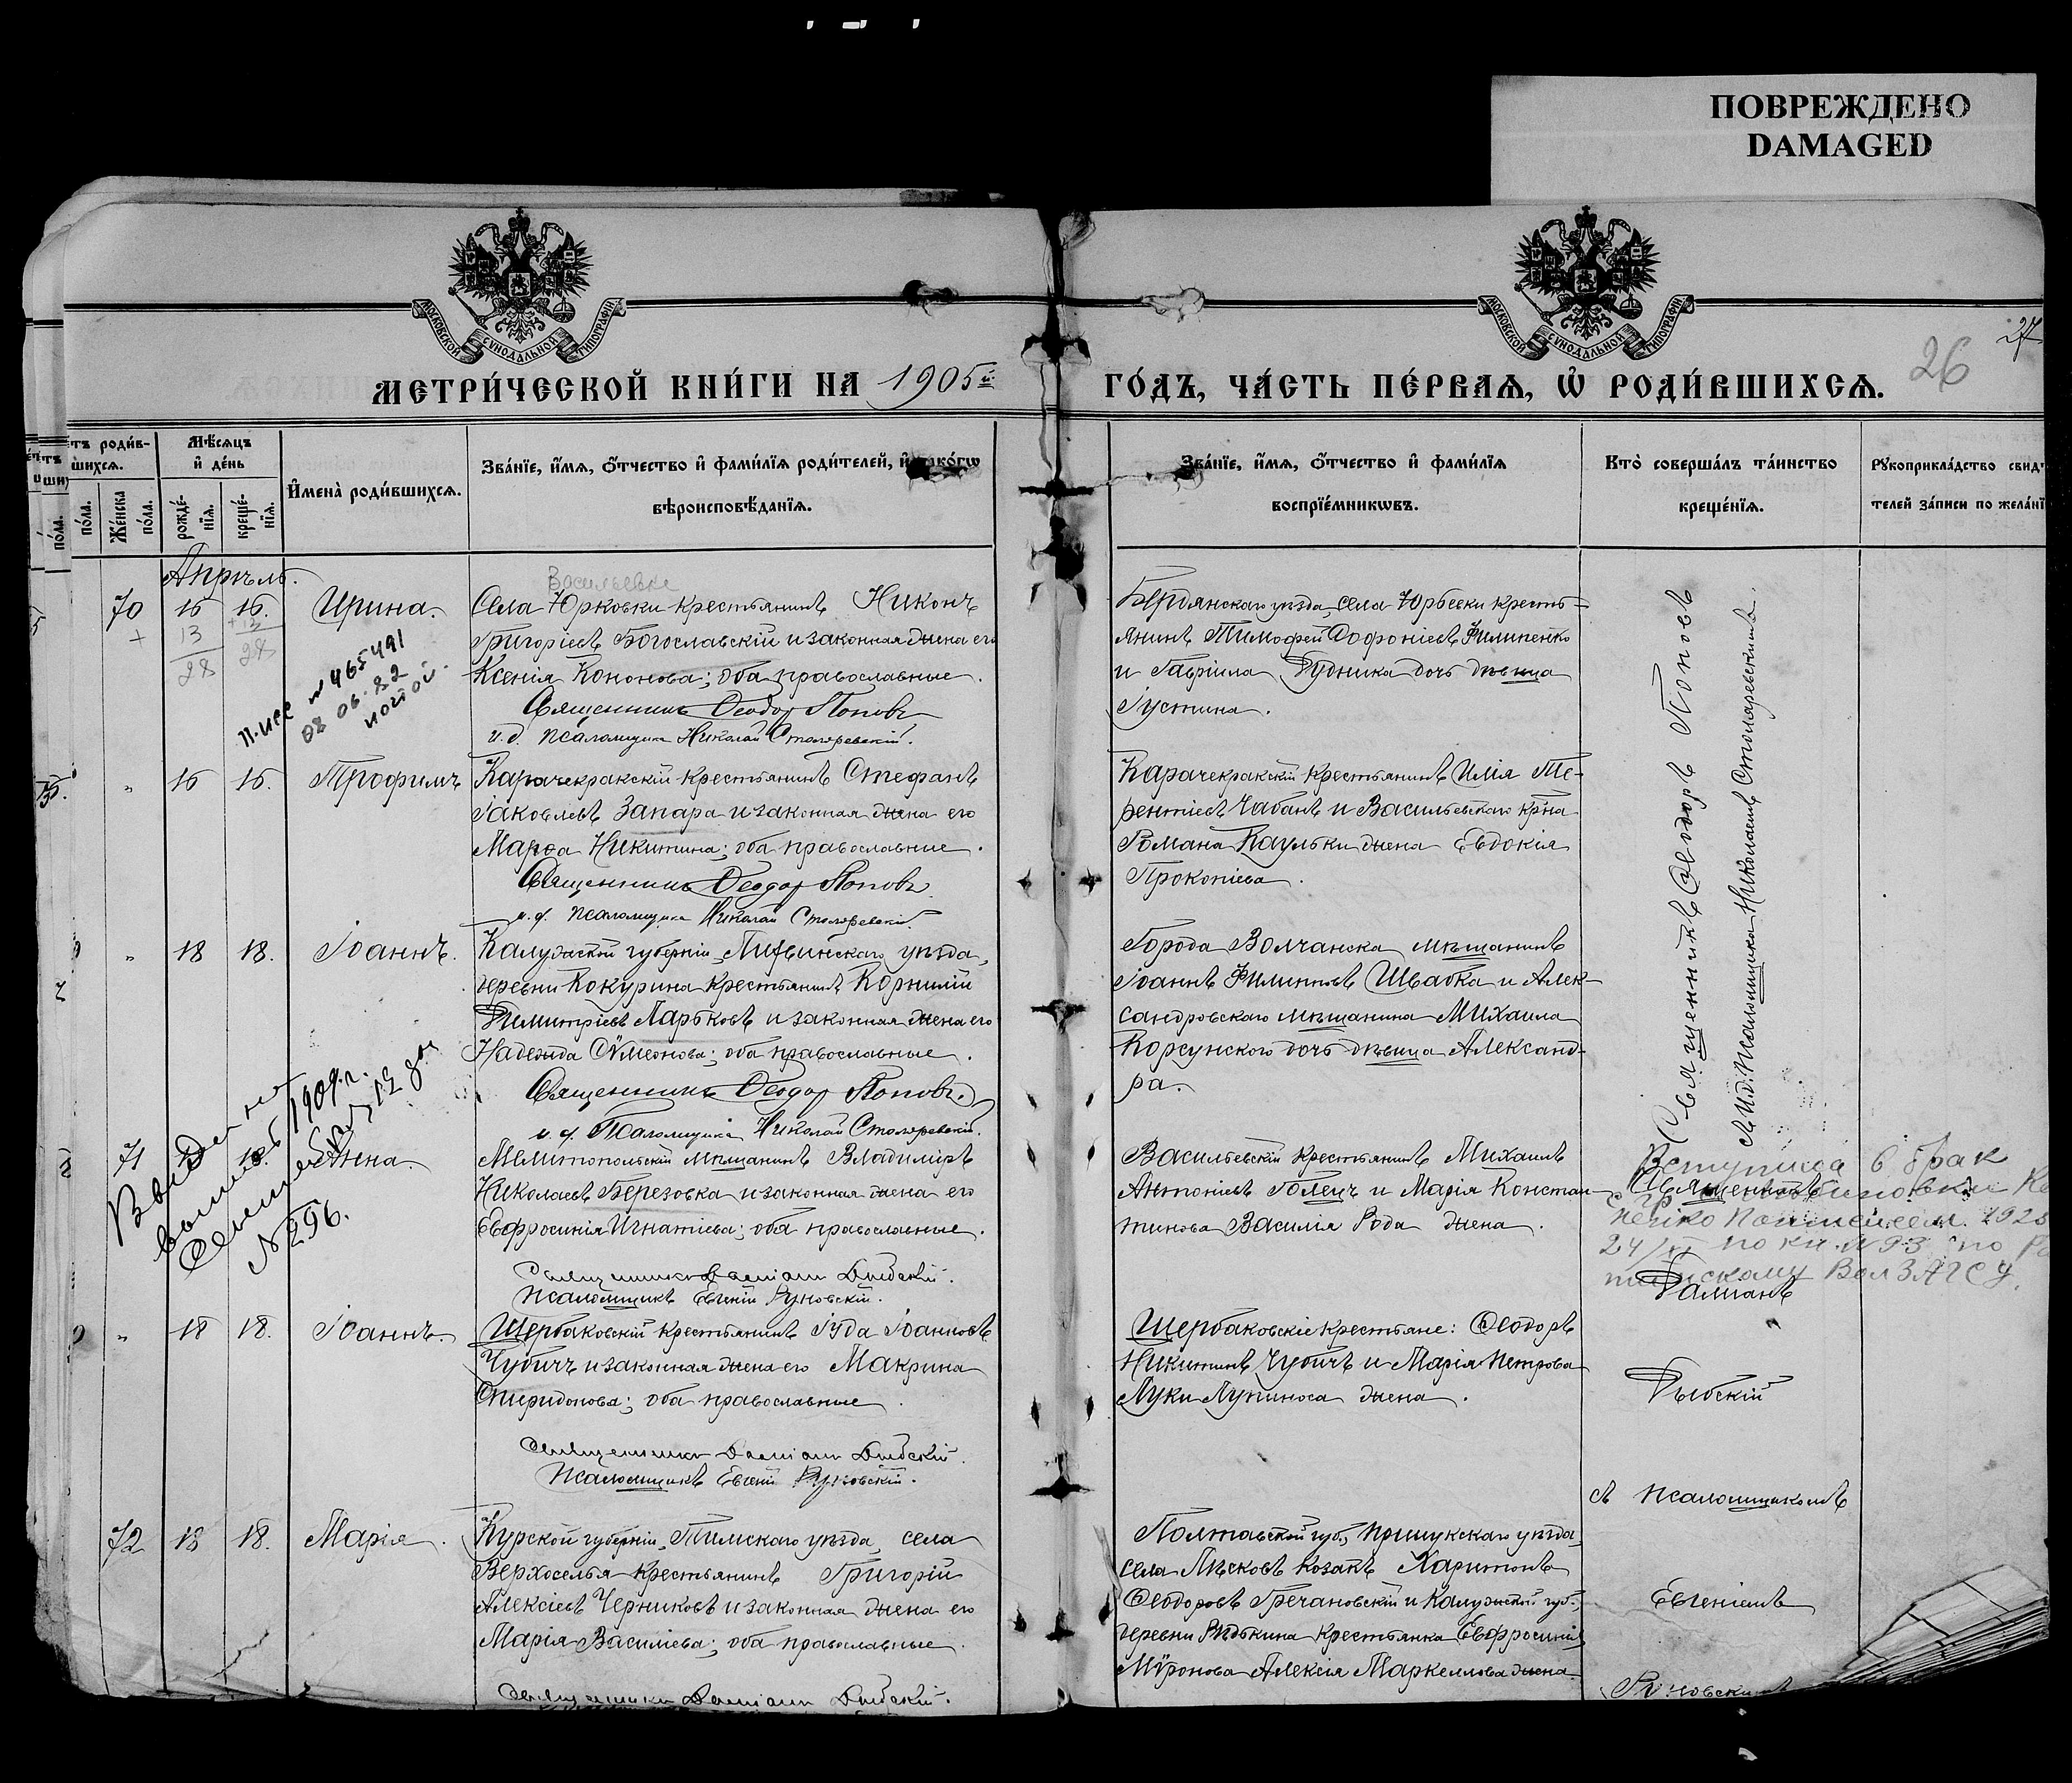 ПОВРЕЖДЕНО
DAMAGED
МОСКОВСКОЙ СѴНОДАЛЬНОЙ ТИПОГРАФІИ
МОСКОВСКОЙ СѴНОДАЛЬНОЙ ТИПОГРАФІИ
27
26
МЕТРИ́ЧЕСКОЙ КНИ́ГИ НА 1905й
ГО́ДЪ, ЧА́СТЬ ПЕ́РВАѦ, Ѡ҆ РОДИ́ВШИХСѦ.
тъ роди́в-
шихсѧ.
по́ла.
Же́нска
по́ла.
Мѣ́сѧцъ
и҆ де́нь
рожде́-
нїѧ.
креще́-
нїѧ.
И҆мена̀ роди́вшихсѧ.
Зва́нїе, и҆́мѧ, ѻ҆́тчество и҆ фами́лїѧ роди́телей, и҆ како́гѡ
вѣроисповѣ́данїѧ.
Зва́нїе, и҆́мѧ, ѻ҆́тчество и҆ фами́лїѧ
воспрїе́мникѡвъ.
Кто̀ соверша́лъ та́инство
креще́нїѧ.
Рꙋкоприкла́дство свид
телей за́писи по жела́нї
Апрѣль.
70 15 15. Ирина.
+ 13
28 28
п. исс № 465491
08 06. 82
Васильевке
Села Юрковки крестьянинъ Никонъ
Григоріевъ Богославскій и законная жена его
Ксенія Кононова; оба православные.
Священникъ Ѳеодор Поповъ
и. д. псаломщика Николай Столяревскій.
Бердянскаго уѣзда, села Юрьевки кресть-
янинъ Тимофей Софоніевъ Филипенко
и Гавріила Рудника дочь дѣвица
Іустина.
" 15 15. Трофимъ
Карачекракскій крестьянинъ Стефанъ
Іаковлевъ Запара и законная жена его
Марѳа Никитина; оба православные.
Священникъ Ѳеодор Поповъ
и. д. псаломщика Николай Столяревскій.
Карачекракскій крестьянинъ Илія Те-
рентіевъ Чабанъ и Васильевскаго кр-на
Романа Каульки жена Евдокія
Прокопіева.
" 18 18. Іоаннъ.
Калужской губерніи, Лихвинскаго уѣзда,
деревни Кокурина крестьянинъ Корнилій
Димитріевъ Ларьковъ и законная жена его
Надежда Сѵмеонова; оба православные.
Священникъ Ѳеодор Поповъ.
и. д. Псаломщика Николай Столяревскій.
Города Волчанска мѣщанинъ
Іоаннъ Филипповъ Швабка и Алек-
сандровскаго мѣщанина Михаила
Корсунскаго дочь дѣвица Александ-
ра.
Священникъ Ѳеодоръ Поповъ
съ И.д. Псаломщика Николаемъ Столяревскимъ.
1909 г.
№ 256.
71 18. Анна.
Мелитопольскій мѣщанинъ Владиміръ
Николаевъ Березовка и законная жена его
Евфросинія Игнатіева; оба православные.
Священникъ Даміанъ Дыбскій.
Псаломщикъ Евгеній Руновскій.
Васильевскій крестьянинъ Михаилъ
Антоніевъ Голецъ и Марія Констан-
тинова Василія Рода жена.
Вступила в брак
Священникъ
24/ по кн. № 93 по
Вол ЗАГСУ.
Даміанъ
" 18 18. Іоаннъ.
Щербаковскій крестьянинъ Іуда Іоанновъ
Чубичъ и законная жена его Макрина
Спиридонова; оба православные.
Священникъ Даміанъ Дыбскій.
Псаломщикъ Евгеній Руновскій.
Щербаковскіе крестьяне: Ѳеодоръ
Никитинъ Чубичъ и Марія Петрова
Луки Лупиноса жена.
Дыбскій
съ псаломщикомъ
72 18 18. Марія.
Курской губерніи, Тимскаго уѣзда, села
Верхоселья крестьянинъ Григорій
Алексіевъ Черниковъ и законная жена его
Марія Василіева; оба православные.
Священникъ Даміанъ Дыбскій.
Полтавской губ., Прилукскаго уѣзда,
села Пѣсковъ козакъ Харитонъ
Ѳеодоровъ Гречановскій и Калужской губ.,
деревни Рѣдькина крестьянка Евфросинія
Мѵронова Алексія Маркеллова жена.
Евгеніемъ
Руновскимъ